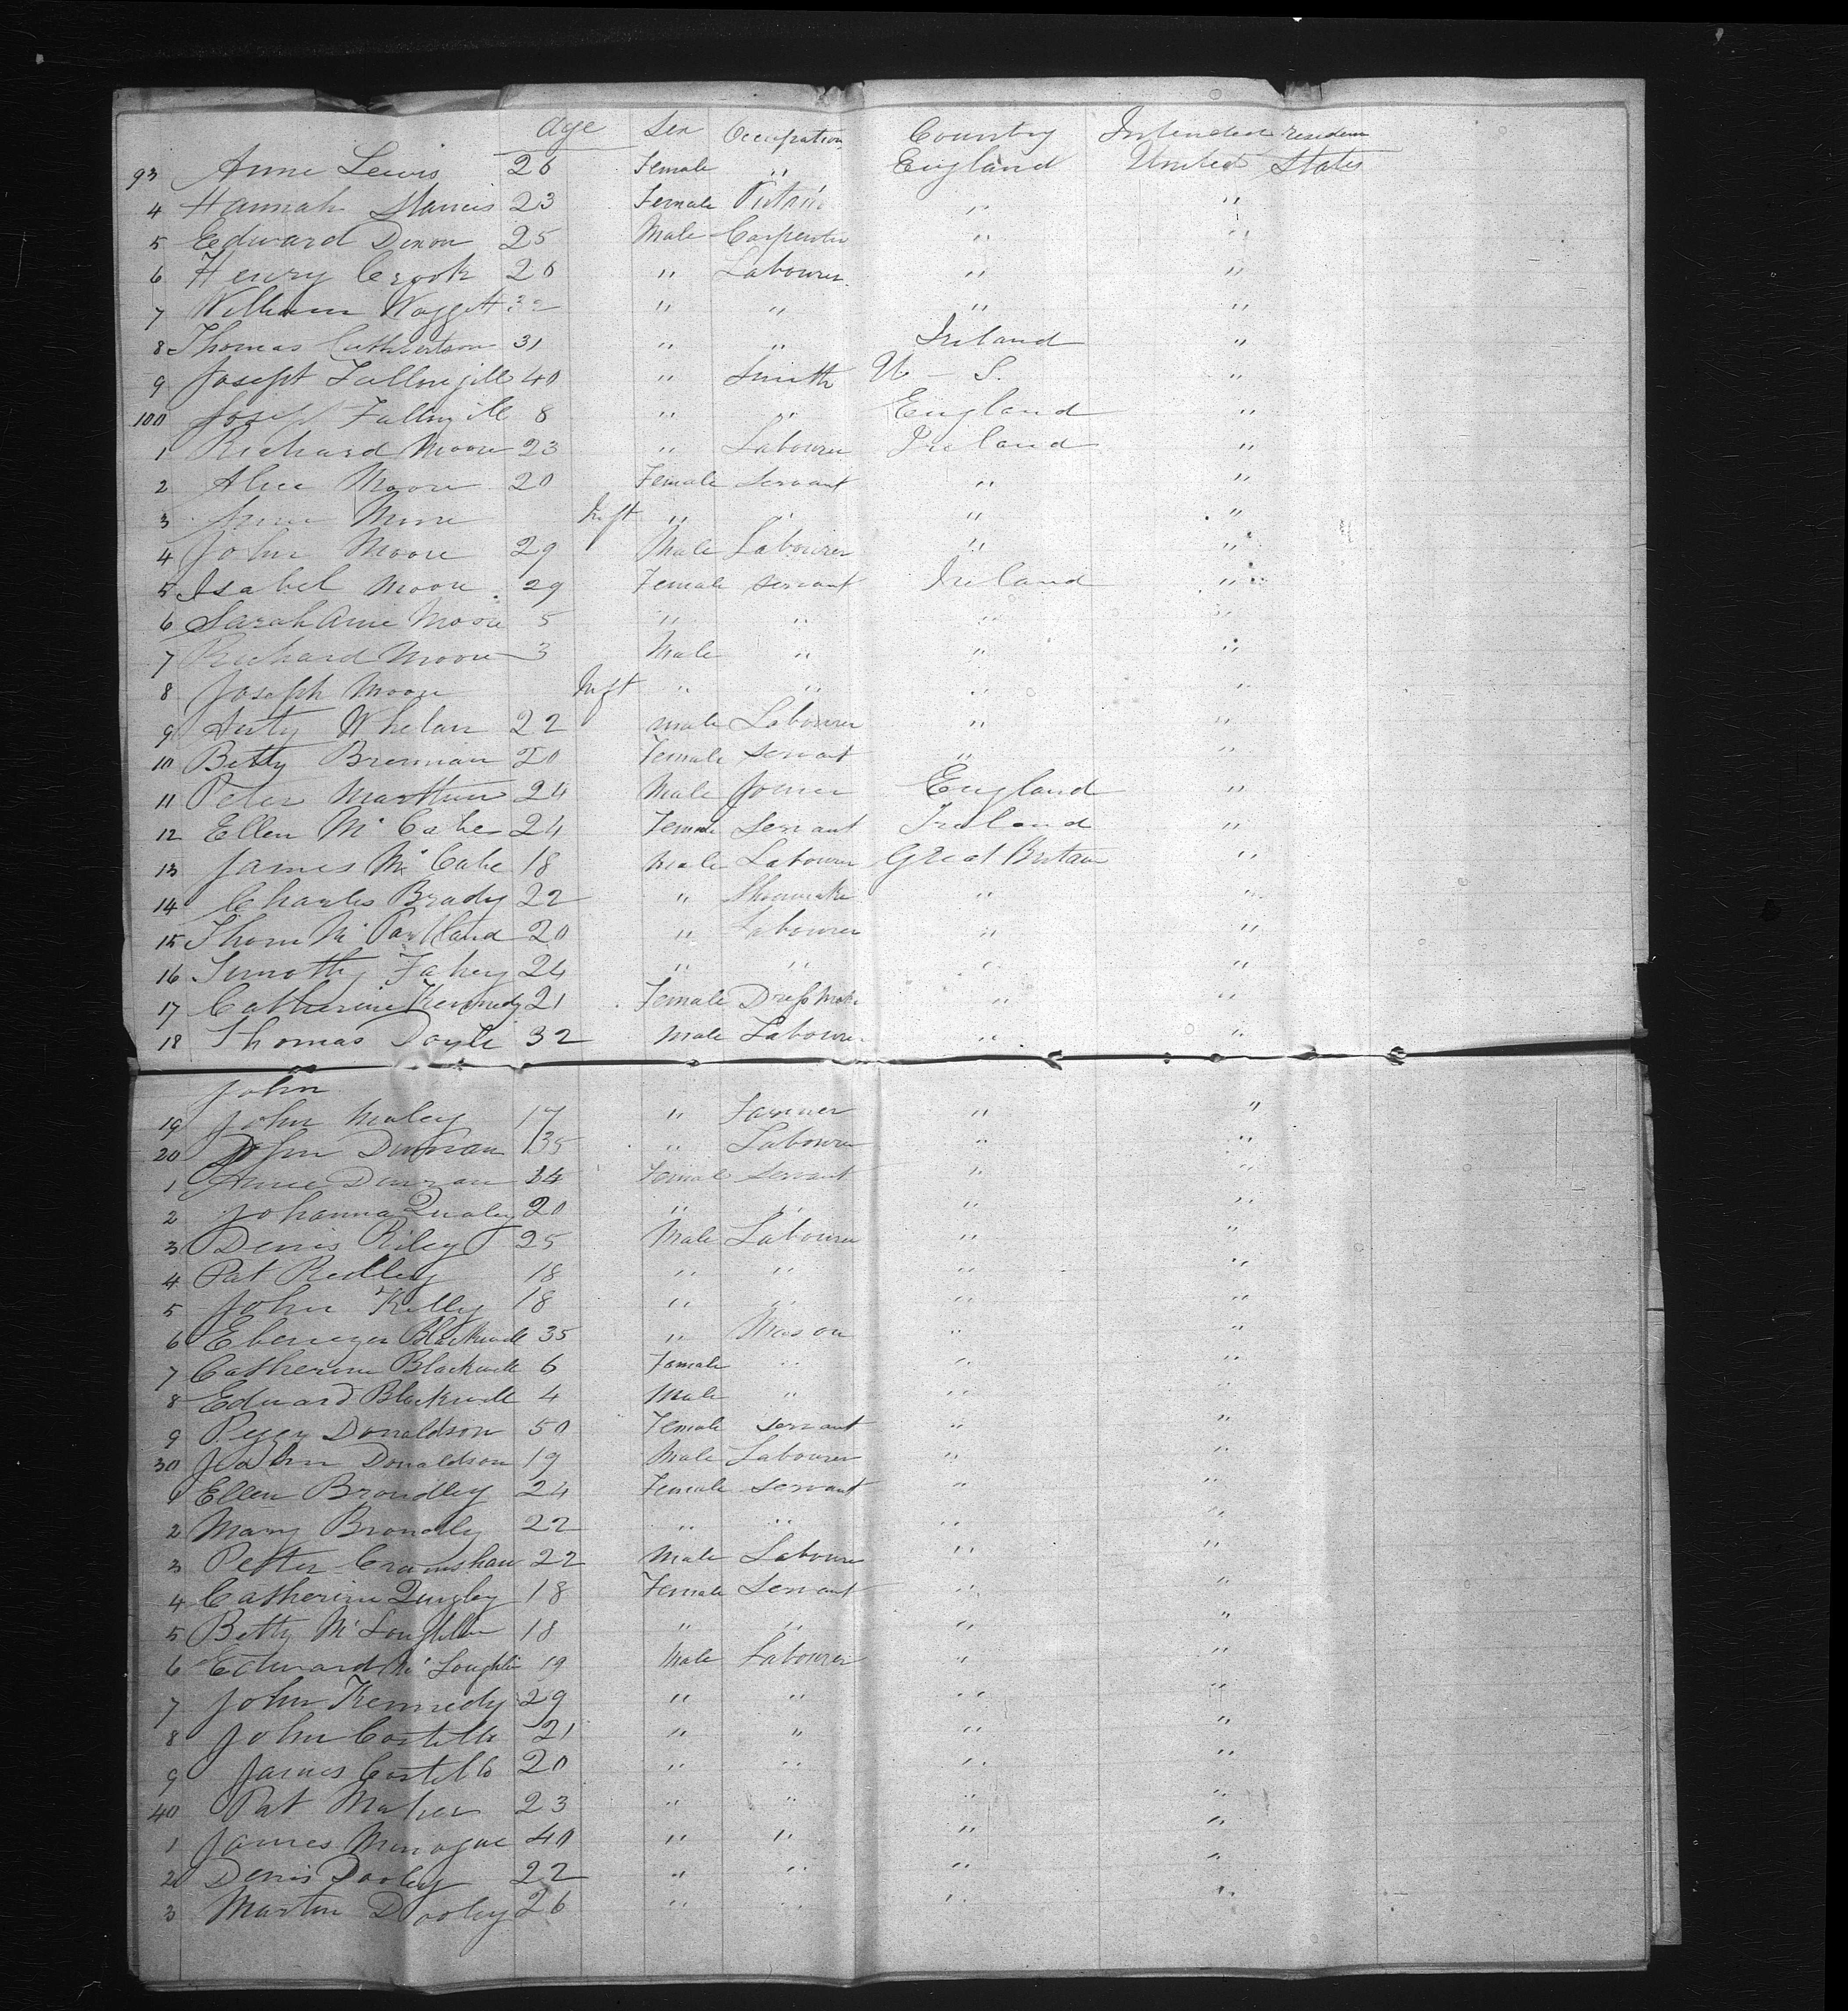 Age Sex Occupation Country Intended residence
93 Anne Lewis 26 Female " England United States
4 Hannah 23 Female " "
5 Edward Dixon 25 Male Carpenter " "
6 Henry Crook 20 " Labourer " "
7 William Waggett 32 " " " "
8 Thomas Cuthbertson 31 " " Ireland "
9 Joseph 40 " Smith U - S. "
100 Joseph 8 " " England "
1 Richard Moore 23 " Labourer Ireland "
2 Alice Moore 20 Female Servant " "
3 Anne Moore Inft " " " "
4 John Moore 29 Male Labourer " "
5 Isabel Moore 29 Female Servant Ireland "
6 Sarah Anne Moore 5 " " " "
7 Richard Moore 3 Male " " "
8 Joseph Moore Inft " " " "
9 Whelan 22 Male Labourer " "
10 Betty Brennan 20 Female Servant " "
11 Peter 24 Male Joiner England "
12 Ellen McCabe 24 Female Servant Ireland "
13 James McCabe 18 Male Labourer Great Britain "
14 Charles Brady 22 " Shoemaker " "
15 Thom McPartland 20 " Labourer " "
16 Timothy Fahey 24 " " " "
17 Catherine Kennedy 21 Female Dress Make " "
18 Thomas Doyle 32 Male Labourer " "
John
19 John Maley 17 " Farmer " "
20 John 35 " Labourer " "
1 Anne 14 Female Servant " "
2 Johanna 20 " " " "
3 Denis Riley 25 Male Labourer " "
4 Pat 18 " " " "
5 John Kelly 18 " " " "
6 Ebenezer Blackwell 35 " Mason " "
7 Catherine Blackwell 6 Female " " "
8 Edward Blackwell 4 Male " " "
9 Peggy Donaldson 50 Female Servant " "
30 John Donaldson 19 Male Labourer " "
1 Ellen Brondley 24 Female Servant " "
2 Mary Brondly 22 " " " "
3 Petter Crawshaw 22 Male Labourer " "
4 Catherine Quigley 18 Female Servant " "
5 Betty McLoughlin 18 " " " "
6 Edward McLoughlin 19 Male Labourer " "
7 John Kennedy 29 " " " "
8 John Costello 21 " " " "
9 James Costello 20 " " " "
40 Pat Maher 23 " " " "
1 James 40 " " " "
2 Denis Dooley 22 " " " "
3 Martin Dooley 26 " " " "